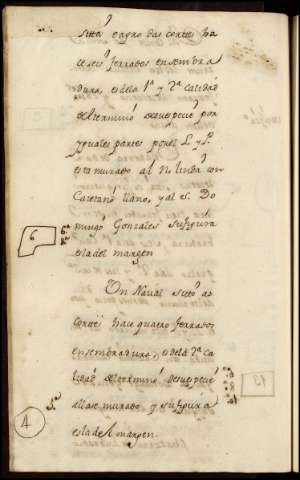 sitto Eagro das cortes ha
ce seis ferrados en sembra
dura, es dela 1ª y 2ª calidad
del termino por
yguales partes por el L. y P.
esta murado al N. linda con
Caietano llano, y al S. Do
mingo Gonzales su figura
6
es la del margen
Un Naval sitto as
Cortes hace quatro ferrados
en sembradura, es de la 2ª ca
lidad del termino
allase murado y su figura
5ª
4
es la del margen.